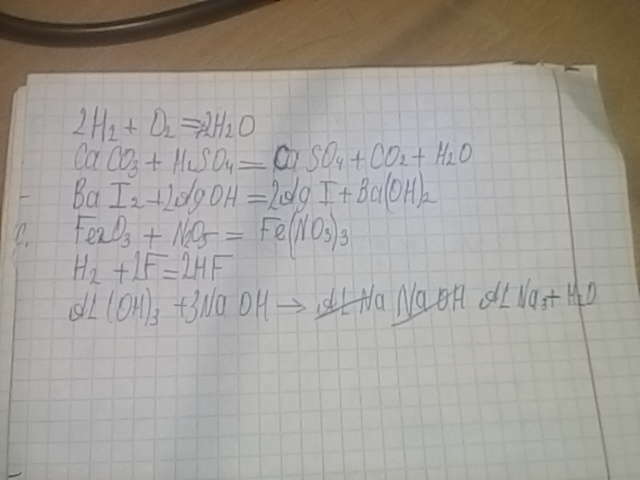 2H₂ + O₂ = 2H₂O
CaCO₃ + H₂SO₄ = CaSO₄ + CO₂ + H₂O
BaI₂ + 2AgOH = 2AgI + Ba(OH)₂
Fe₂O₃ + N₂O₅ = Fe(NO₃)₃
H₂ + 2F = 2HF
AL(OH)₃ + 3NaOH → ALNa NaOH ALNa₃ + H₂O